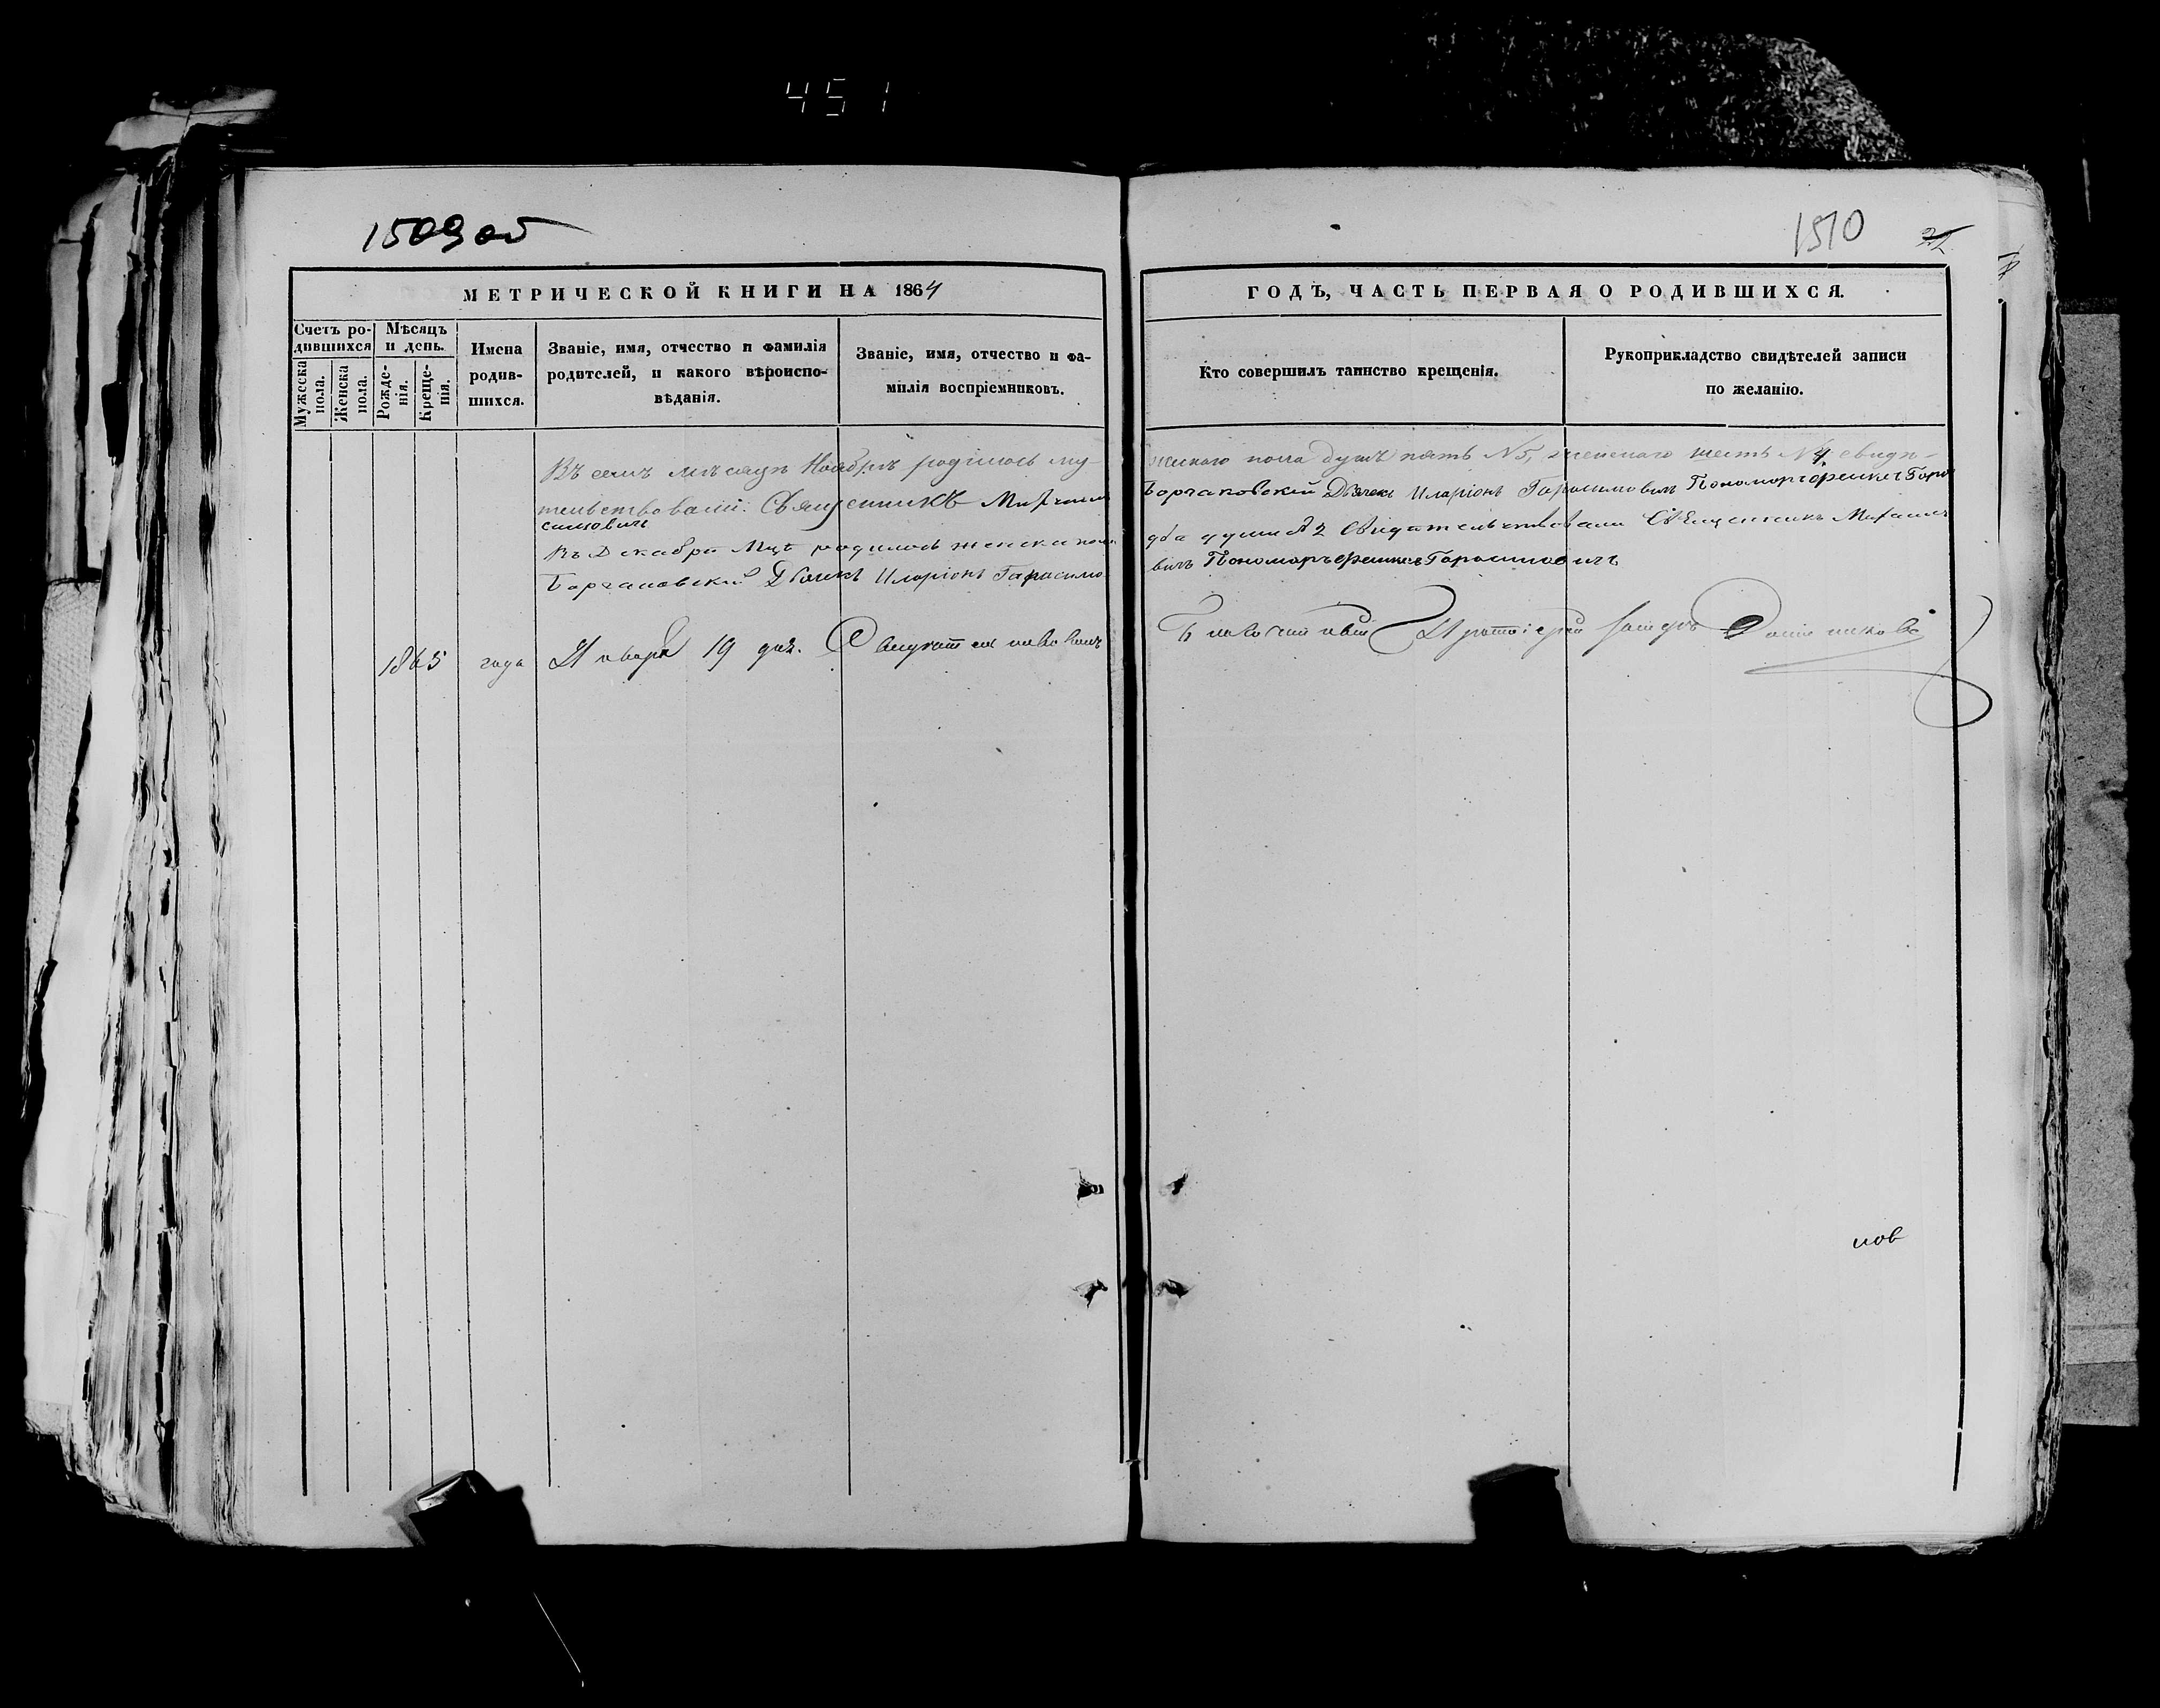 451
1509 об
1510
МЕТРИЧЕСКОЙ КНИГИ НА 1864
ГОДЪ, ЧАСТЬ ПЕРВАЯ О РОДИВШИХСЯ.
Счетъ ро-
дившихся
Мужеска
пола.
Женска
пола.
Мѣсяцъ
и день.
Рожде-
нія.
Креще-
нія.
Имена
родив-
шихся.
Званіе, имя, отчество и фамилія
родителей, и какого вѣроиспо-
вѣданія.
Званіе, имя, отчество и фа-
милія воспріемниковъ.
Кто совершилъ таинство крещенія.
Рукоприкладство свидѣтелей записи
по желанію.
Въ семъ мѣсяцѣ Ноябрѣ родилось му-
жескаго пола душъ пять №5, женскаго шесть № свидѣ-
тельствовали: Священникъ Михаилъ
Дьячекъ Иларіонъ Гарасимовичъ Пономарь Гара
симовичъ
Въ Декабрѣ Мцѣ родилось женска пола
два души №2 Свидѣтельствовали Священникъ Михаилъ
Дьячекъ Иларіонъ Гарасимо
вичъ Пономарь Гарасимовичъ
1865 года Января 19 дня. Свидѣтельствовалъ
Благочинный Протоіерей
нов